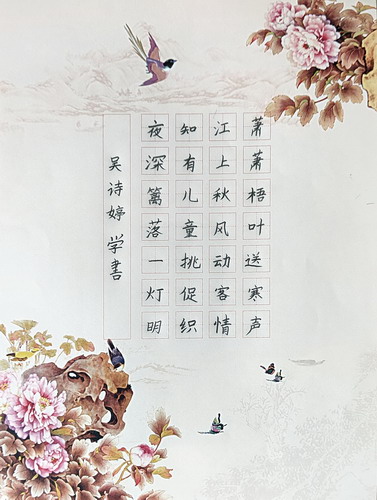 萧萧梧叶送寒声
江上秋风动客情
知有儿童挑促织
夜深篱落一灯明
吴诗婷学书